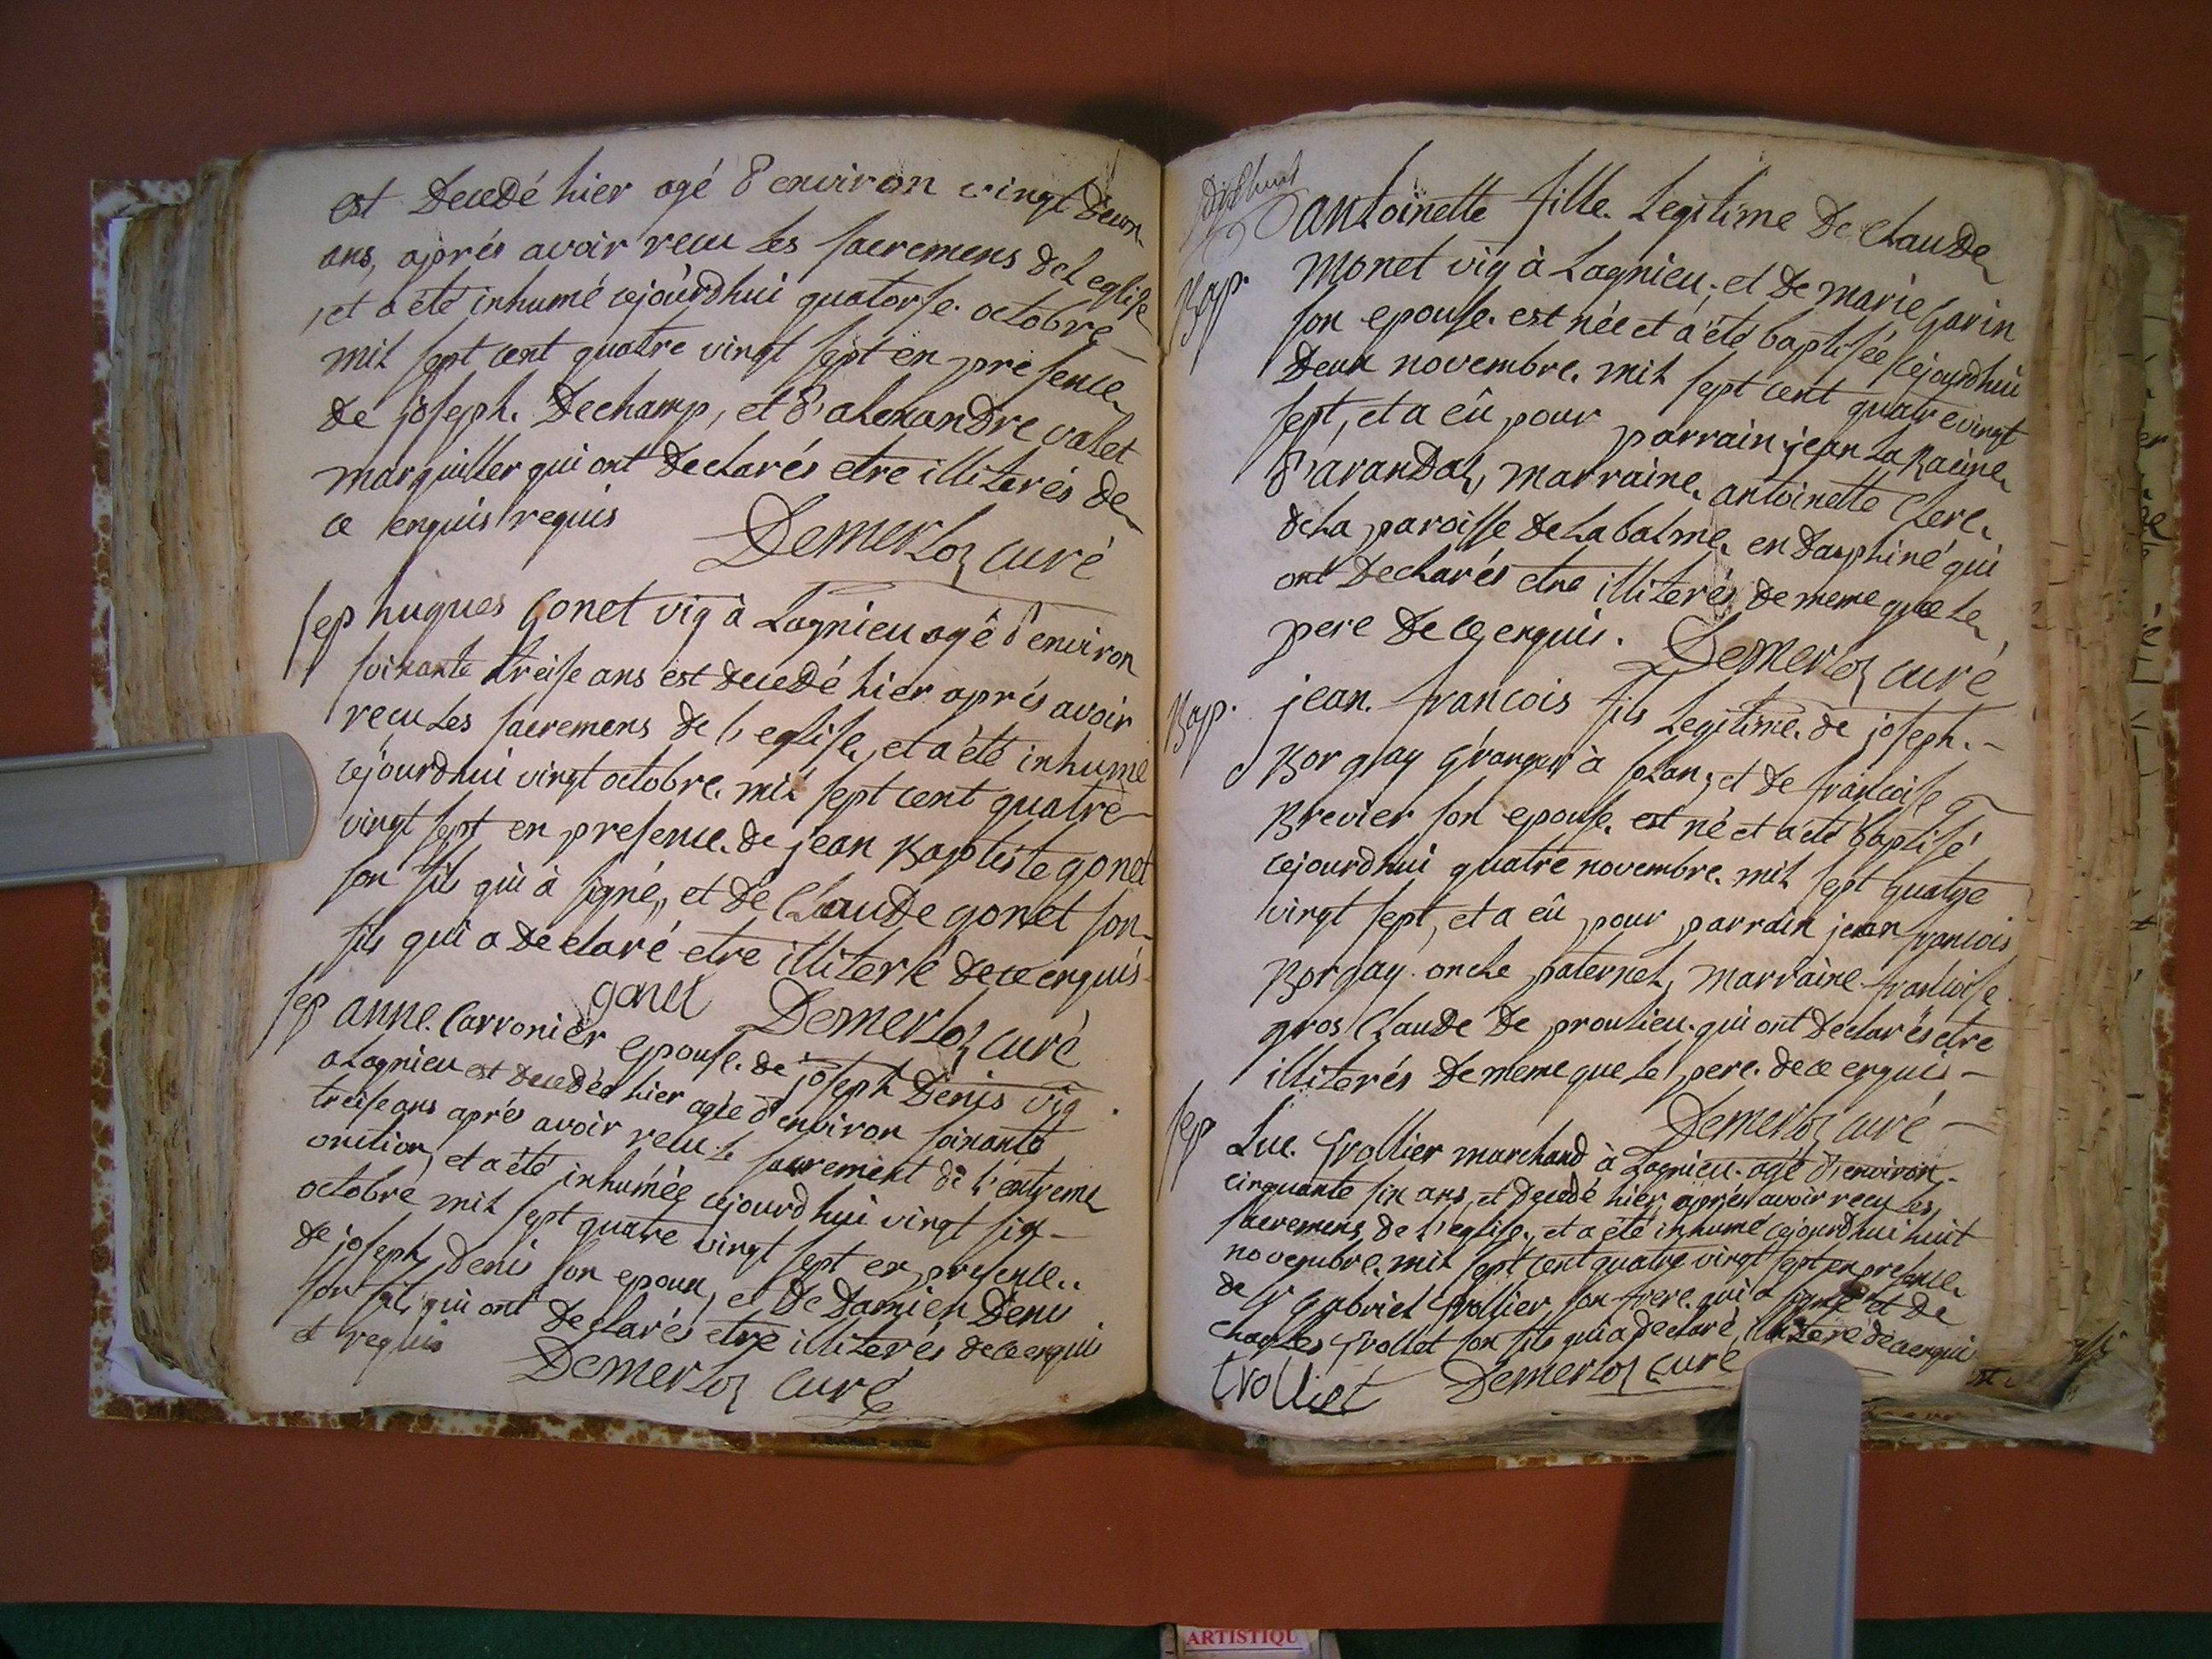 est Decedé hier agé d'environ vingt deux
ans, aprés avoir recu les sacremens de l'eglise
, et a été inhumé cejourdhui quatorse octobre
mil sept cent quatre vingt sept en presence
de joseph Dechamp, et d'alexandre valet
marguiller qui ont declarés etre illiterés de
ce enquis requis
Demerloz curé
sep hugues Gonet vig à Lagnieu agé d'environ
soixante treise ans est decedé hier aprés avoir
recu les sacremens de l'eglise, et a été inhumé
cejourdhui vingt octobre mil sept cent quatre
vingt sept en presence de jean Baptiste gonet
son fils qui à signé, et de Claude gonet son
fils qui a declaré etre illiteré de ce enquis
gonet Demerloz curé
sep anne Carronier epouse de joseph Denis vig
a Lagnieu est decedée hier agée d'environ soixante
treise ans aprés avoir recu le sacrement de l'extreme
onction, et a été inhumée cejourdhui vingt six
octobre mil sept quatre vingt sept en presence
de joseph denis son epoux, et de Damien Denis
son fils qui ont declarés etre illiterés de ce enquis
et requis
Demerloz Curé
dixhuit
antoinette fille legitime de claude
Bap. monet vig à Lagnieu, et de marie Garin
son epouse est née et a été baptisée cejourdhui
deux novembre mil sept cent quatre vingt
sept, et a eû pour parrain jean La Racine
d'arandas, marraine antoinette Clerc
de la paroisse de la balme en dauphiné qui
ont declarés etre illiterés de meme que le
pere de ce enquis.
Demerloz curé
Bap. jean francois fils legitime de joseph
Borgay Granger à solan, et de francoise
Brevier son epouse est né et a été baptisé
cejourdhui quatre novembre mil sept quatre
vingt sept, et a eû pour parrain jean francois
Borgay oncle paternel, marraine francoise
gros Claude de proulieu qui ont declarés etre
illiterés de meme que le pere de ce enquis
Demerloz curé
sep Luc Trollier marchand à Lagnieu agé d'environ
cinquante six ans, et decedé hier aprés avoir recu les
sacremens de l'eglise, et a été inhumé cejourdhui huit
novembre mil sept cent quatre vingt sept en presence
de sr Gabriel trollier son frere qui a signé et de
charles trollet son fils qui a declaré illiteré de ce enquis
trolliet Demerloz curé
ARTISTIQU